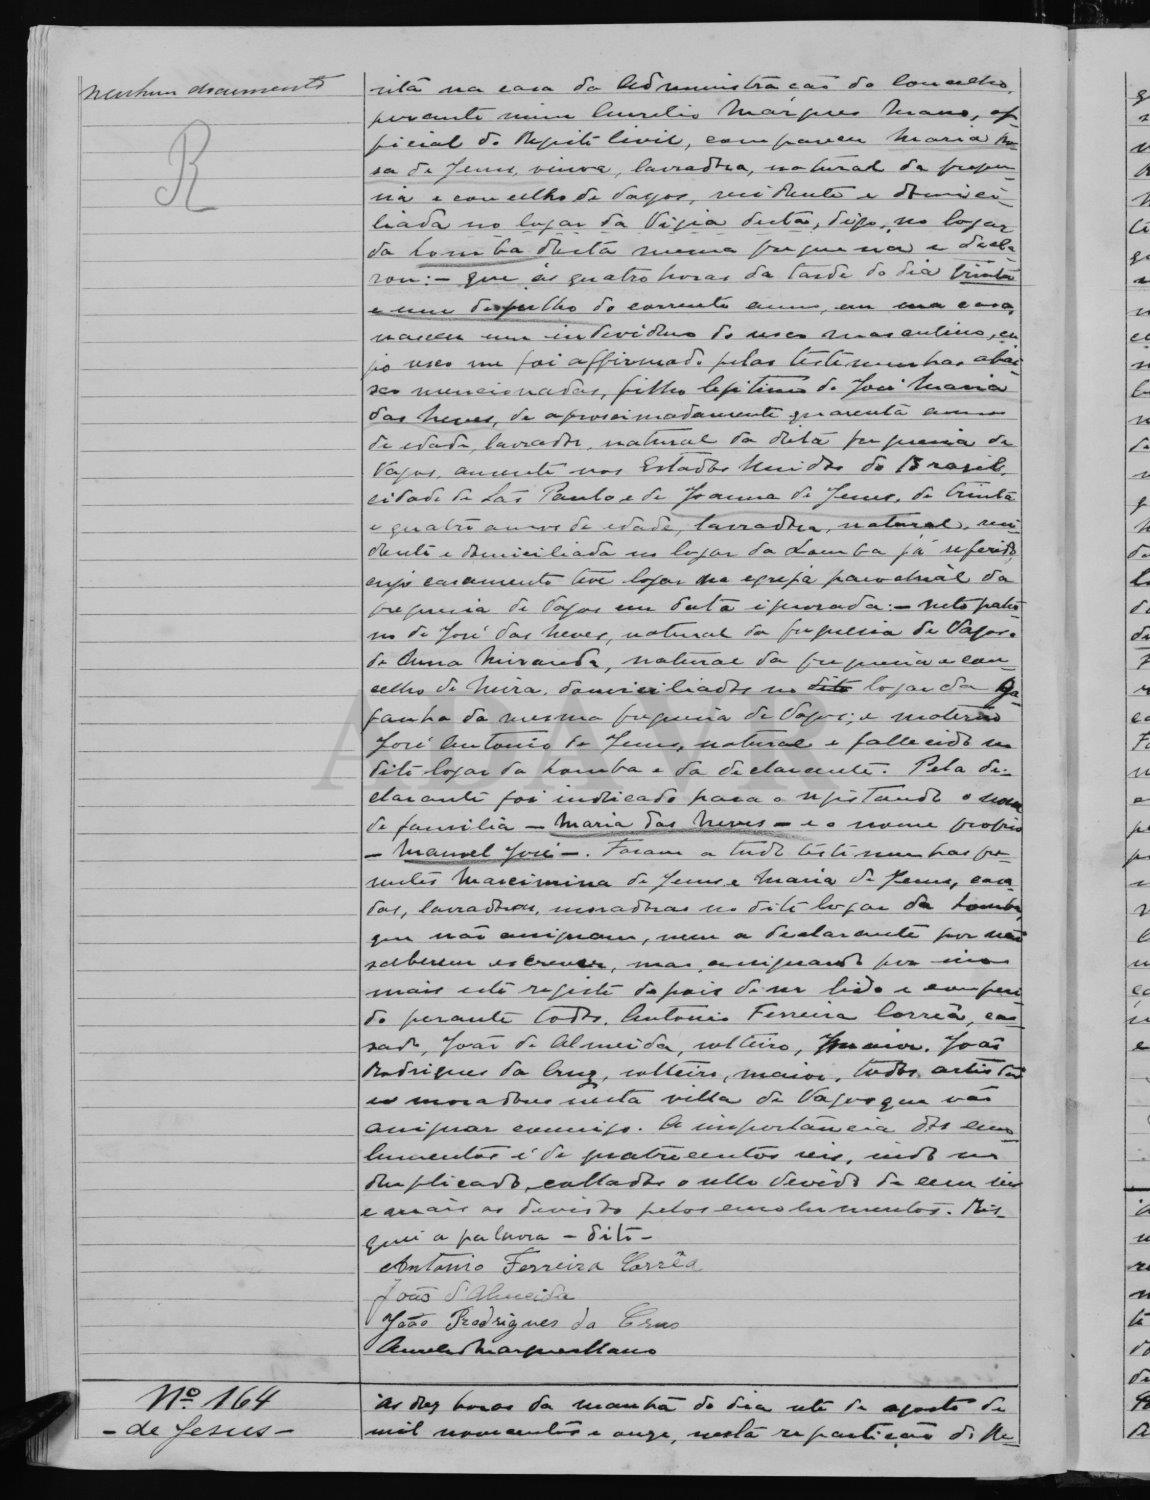 nenhum documento
R
sitã na casa da Administração do Concelho,
perante mim Aurelio Márques Mano, of-
ficial do Registo Civil, compareceu Maria Ro-
sa de Jesus, viuva, lavradora, natural da fregue-
sia e concelho de Vagos, residente e domici-
liada no logar da Vigia desta, digo, no logar
da Lomba desta mesma freguesia e decla-
rou:- que ás quatro horas da tarde do dia trinta
e um de julho do corrente anno, em sua casa,
nasceu um individuo do sexo masculino, cu-
jo sexo me foi affirmado pelas testemunhas abai-
xo mencionadas, filho legitimo de José Maria
das Neves, de aproximadamente quarenta annos
de edade, lavrador, natural da dita freguesia de
Vagos, ausente nos Estados Unidos do Brazil,
cidade de São Paulo e de Joanna de Jesus, de trinta
e quatro annos de edade, lavradora, natural, resi-
dente e domiciliada no logar da Lomba já referido,
cujo casamento teve logar na egreja parochial da
freguesia de Vagos em data ignorada:- neto pater-
no de José das Neves, natural da freguesia de Vagos e
de Anna Miranda, natural da freguesia e con-
celho de Mira, domiciliados no dito logar da Ga-
fanha da mesma freguesia de Vagos; e materno
José Antonio de Jesus, natural e fallecido no
dito logar da Lomba e da declarante. Pela de-
clarante foi indicado para o registando o nome
de familia - Maria das Neves - e o nome proprio
- Manuel José -. Foram a tudo testemunhas pre-
sentes Maximina de Jesus e Maria de Jesus, casa-
das, lavradoras, moradoras no dito logar da Lomba,
que não assignam, nem a declarante por não
saberem escrever, mas assignando por
mais este registo depois de ser lido e conferi-
do perante todos, Antonio Ferreira Corrêa, ca-
sado, João de Almeida, solteiro, maior, João
Rodrigues da Cruz, solteiro, maior, todos artistas
e moradores nesta villa de Vagos que vão
assignar commigo. A importancia dos emo-
lumentos é de quatrocentos reis, indo no
duplicado collados o sello devido de cem reis
e mais os devidos pelos emolumentos. Ris-
quei a palavra - dito -
Antonio Ferreira Corrêa
João d'Almeida
João Rodrigues da Crus
Aurelio Marques Mano
Nº 164
- de Jesus -
Ás dez horas da manhã do dia sete de agosto de
mil novecentos e onze, nesta repartição do Re-
ADAVR